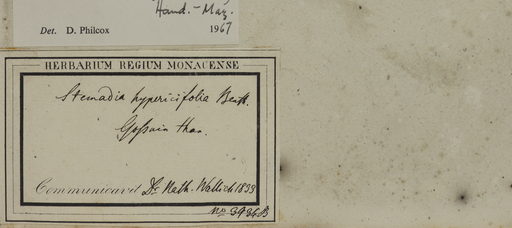 Hand.-Maz.
Det. D. Philcox 1967
HERBARIUM REGIUM MONACENSE
Stemadia hypericifolia Benth.
Goſsain than.
Communicavit Dr. Nath. Wallich 1833
No 3936B